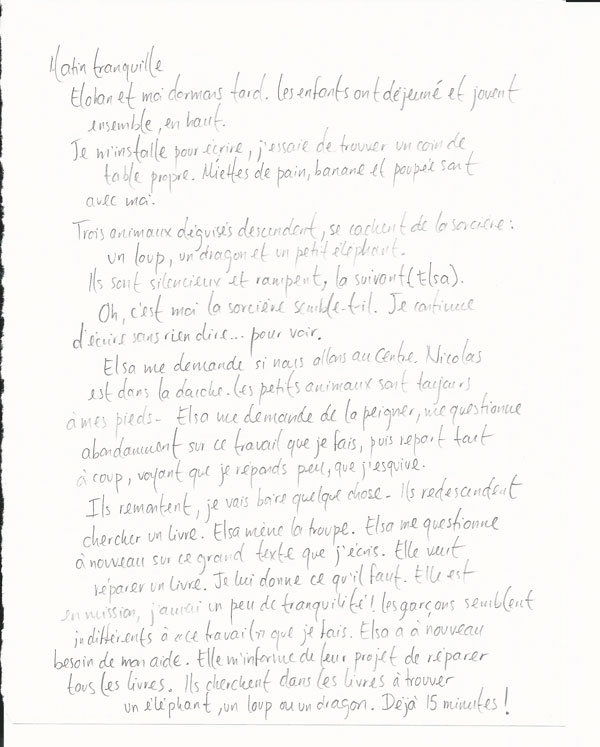 Matin tranquille
Elohan et moi dormons tard. Les enfants ont déjeuné et jouent
ensemble, en haut.
Je m'installe pour écrire, j'essaie de trouver un coin de
table propre. Miettes de pain, banane et poupée sont
avec moi.
Trois animaux déguisés descendent, se cachent de la sorcière :
un loup, un dragon et un petit éléphant.
Ils sont silencieux et rampent, la suivant (Elsa).
Oh, c'est moi la sorcière semble-t-il. Je continue
d'écrire sans rien dire... pour voir.
Elsa me demande si nous allons au Centre. Nicolas
est dans la douche. Les petits animaux sont toujours
à mes pieds - Elsa me demande de la peigner, me questionne
abondamment sur ce travail que je fais, puis repart tout
à coup, voyant que je réponds peu, que j'esquive.
Ils remontent, je vais boire quelque chose - Ils redescendent
chercher un livre. Elsa mène la troupe. Elsa me questionne
à nouveau sur ce grand texte que j'écris. Elle veut
réparer un livre. Je lui donne ce qu'il faut. Elle est
en mission, j'aurai un peu de tranquilité ! Les garçons semblent
indifférents à « ce travail » que je fais. Elsa a à nouveau
besoin de mon aide. Elle m'informe de leur projet de réparer
tous les livres. Ils cherchent dans les livres à trouver
un éléphant, un loup ou un dragon. Déjà 15 minutes !